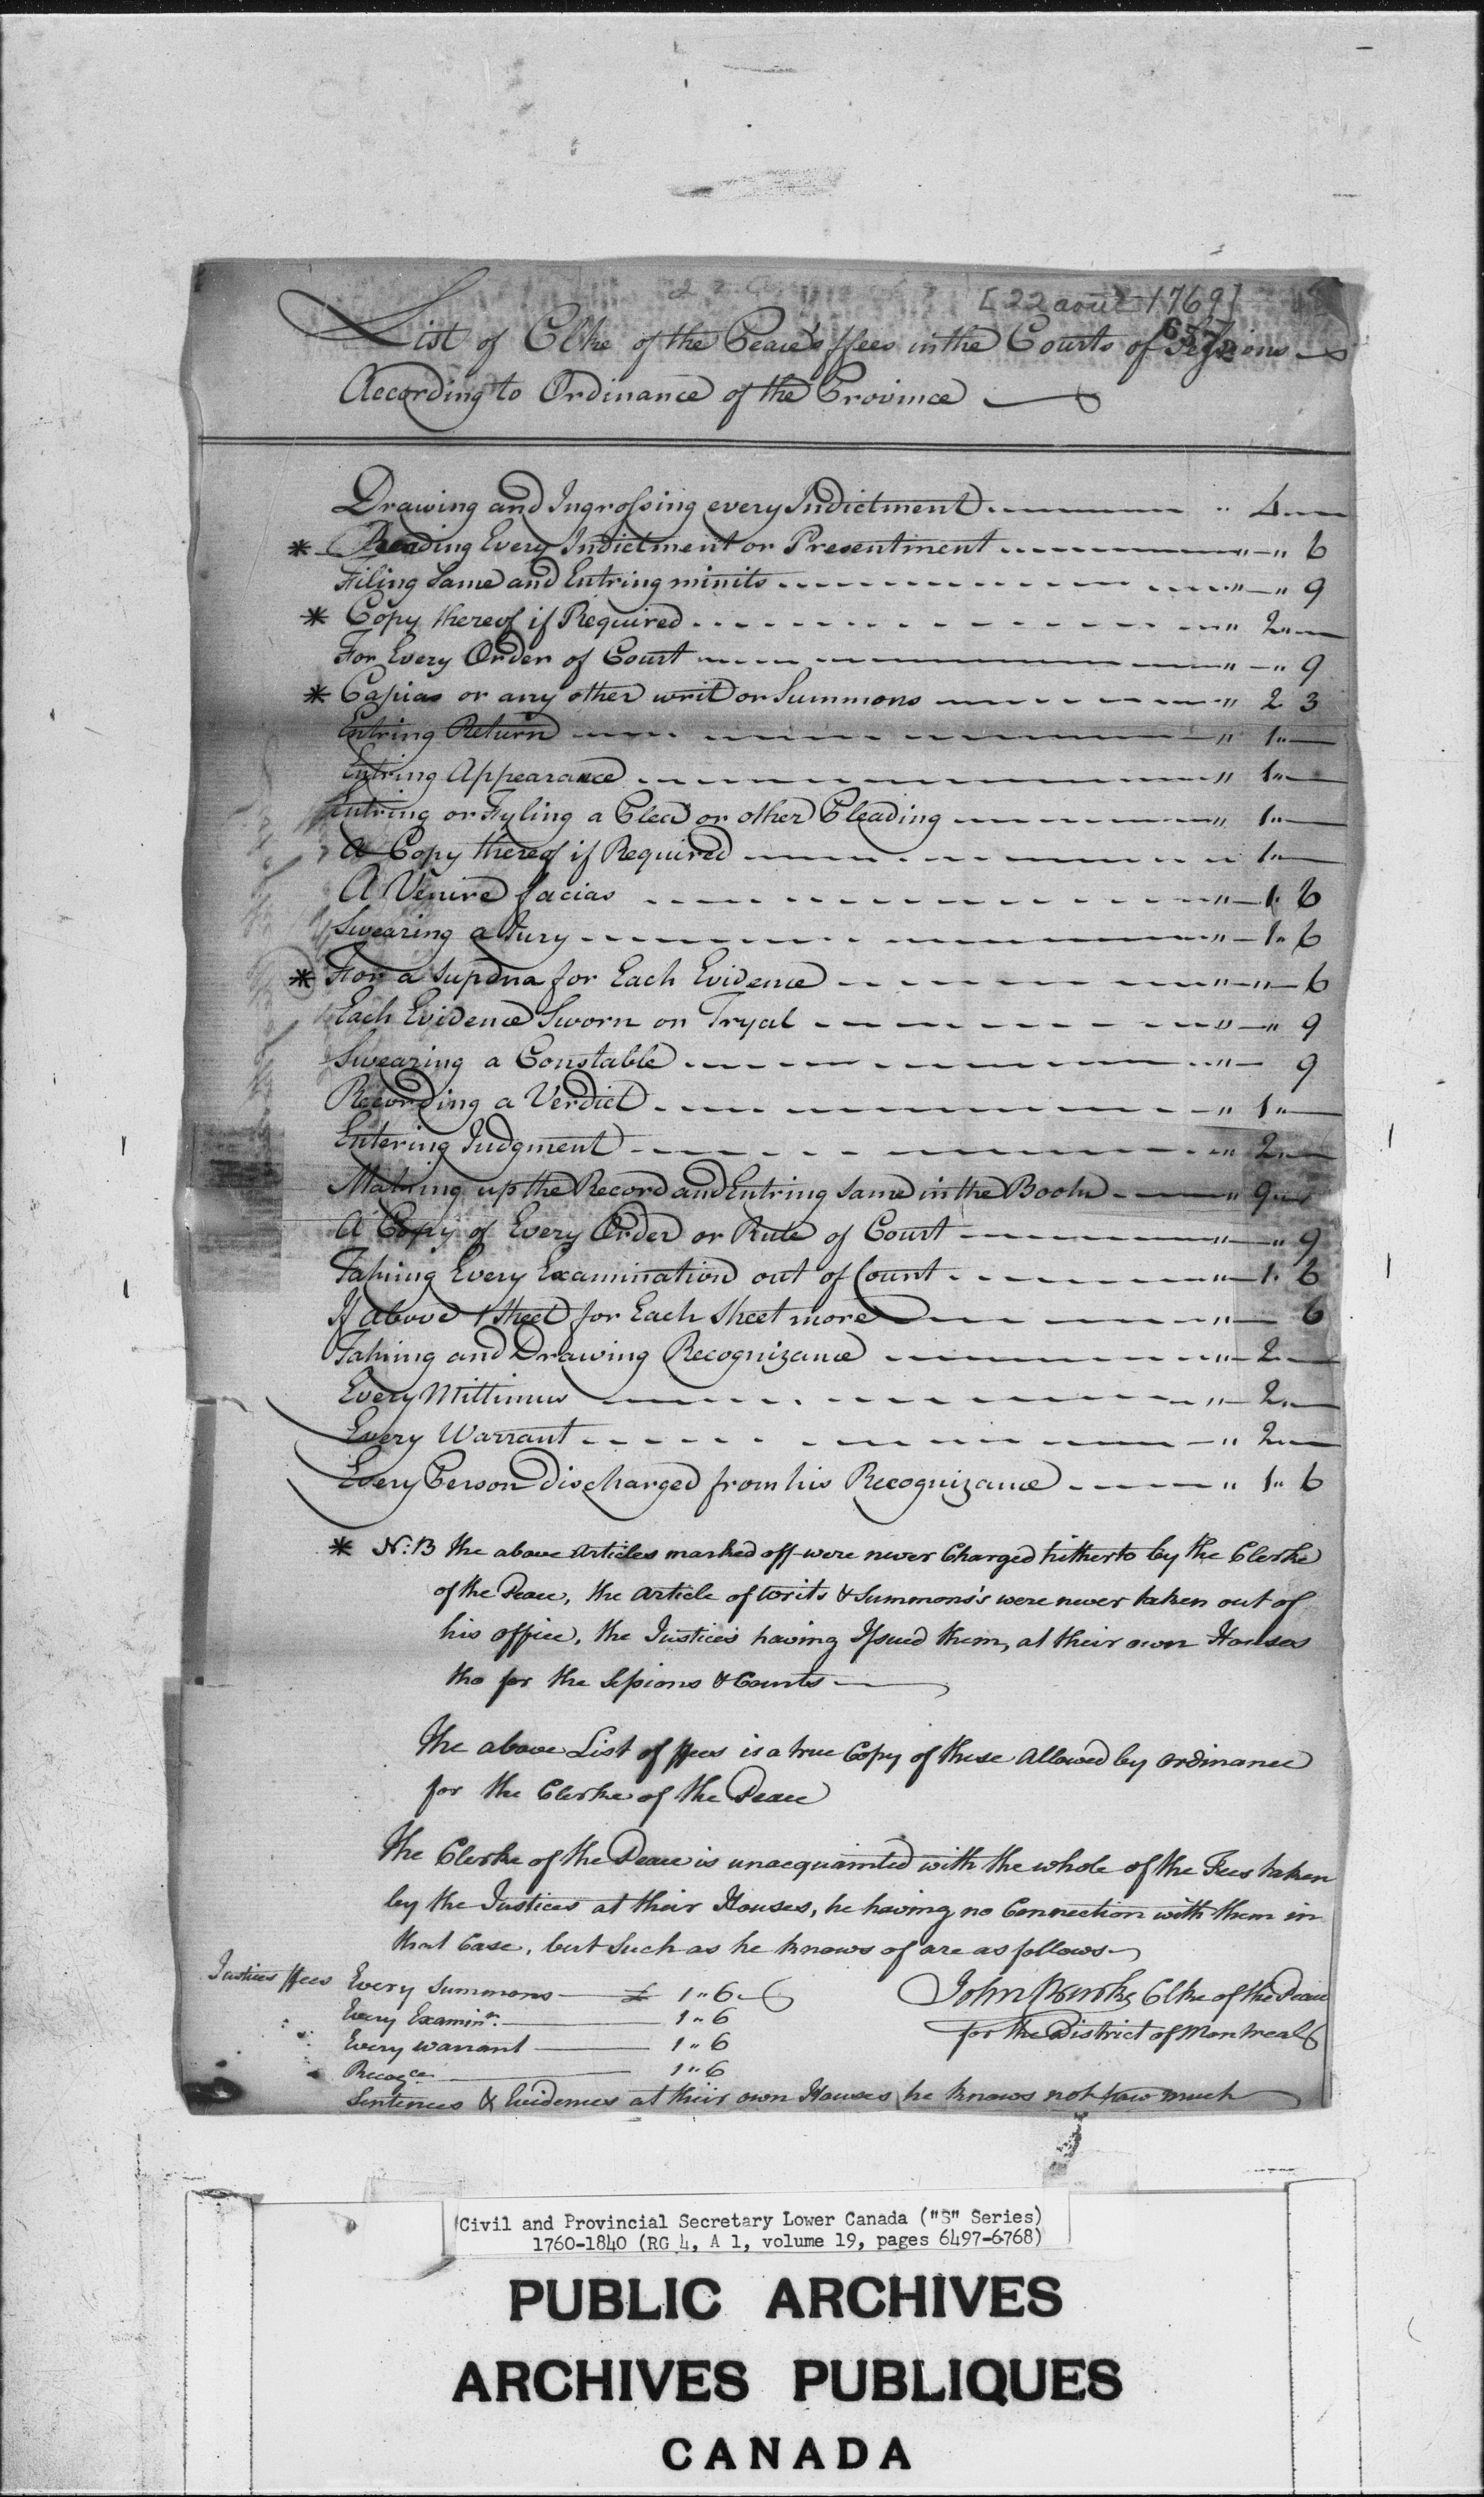 [22 aout 1769]
List of Clke of the Peace's ffees in the Courts of Sessions
According to Ordinance of the Province
Drawing and Ingrossing every Indictment " 4 "
* Reading Every Indictment or Presentment " — " 6
Filing Same and Entring minits " — " 9
* Copy thereof if Required " 2 "
For Every Order of Court " — " 9
* Capias or any other writ or Summons " 2 3
Entring Return " 1 "
Entring Appearance " 1 "
Entring or Fyling a Plea or other Pleading " 1 "
A Copy thereof if Required " 1 "
A Venire facias " 1 " 6
Swearing a Jury " 1 " 6
* For a Supena for Each Evidence " " 6
Each Evidence Sworn on Tryal " — " 9
Swearing a Constable " — 9
Recording a Verdict " 1 "
Entering Judgment " 2 "
Making up the Record and Entring Same in the Book " 9 "
A Copy of Every Order or Rule of Court " — " 9
Taking Every Examination out of Court " 1 " 6
If above 1 Sheet for Each Sheet more " — 6
Taking and Drawing Recognizance " 2 —
Every Mittimus " 2 "
Every Warrant " 2 "
Every Person discharged from his Recognizance " 1 " 6
* N:B the above Articles marked off were never Charged hitherto by the Clerke
of the Peace, the Article of Writs & Summons's were never taken out of
his office, the Justices having Issued them, at their own Houses
tho for the Sessions & Courts
The above List of ffees is a true Copy of these Allowed by Ordinance
for the Clerke of the Peace
The Clerke of the Peace is unacquainted with the whole of the Fees taken
by the Justices at their Houses, he having no Connection with them in
that Case, but Such as he knows of are as follows
Justices ffees Every Summons £ 1 " 6
John Burke Clke of the Peace
Every Examinn. 1 " 6
for the District of Montreal
Every warrant 1 " 6
Recogce. 1 " 6
Sentences & Evidences at their own Houses he knows not how much
Civil and Provincial Secretary Lower Canada ("S" Series)
1760-1840 (RG 4, A 1, volume 19, pages 6497-6768)
PUBLIC ARCHIVES
ARCHIVES PUBLIQUES
CANADA